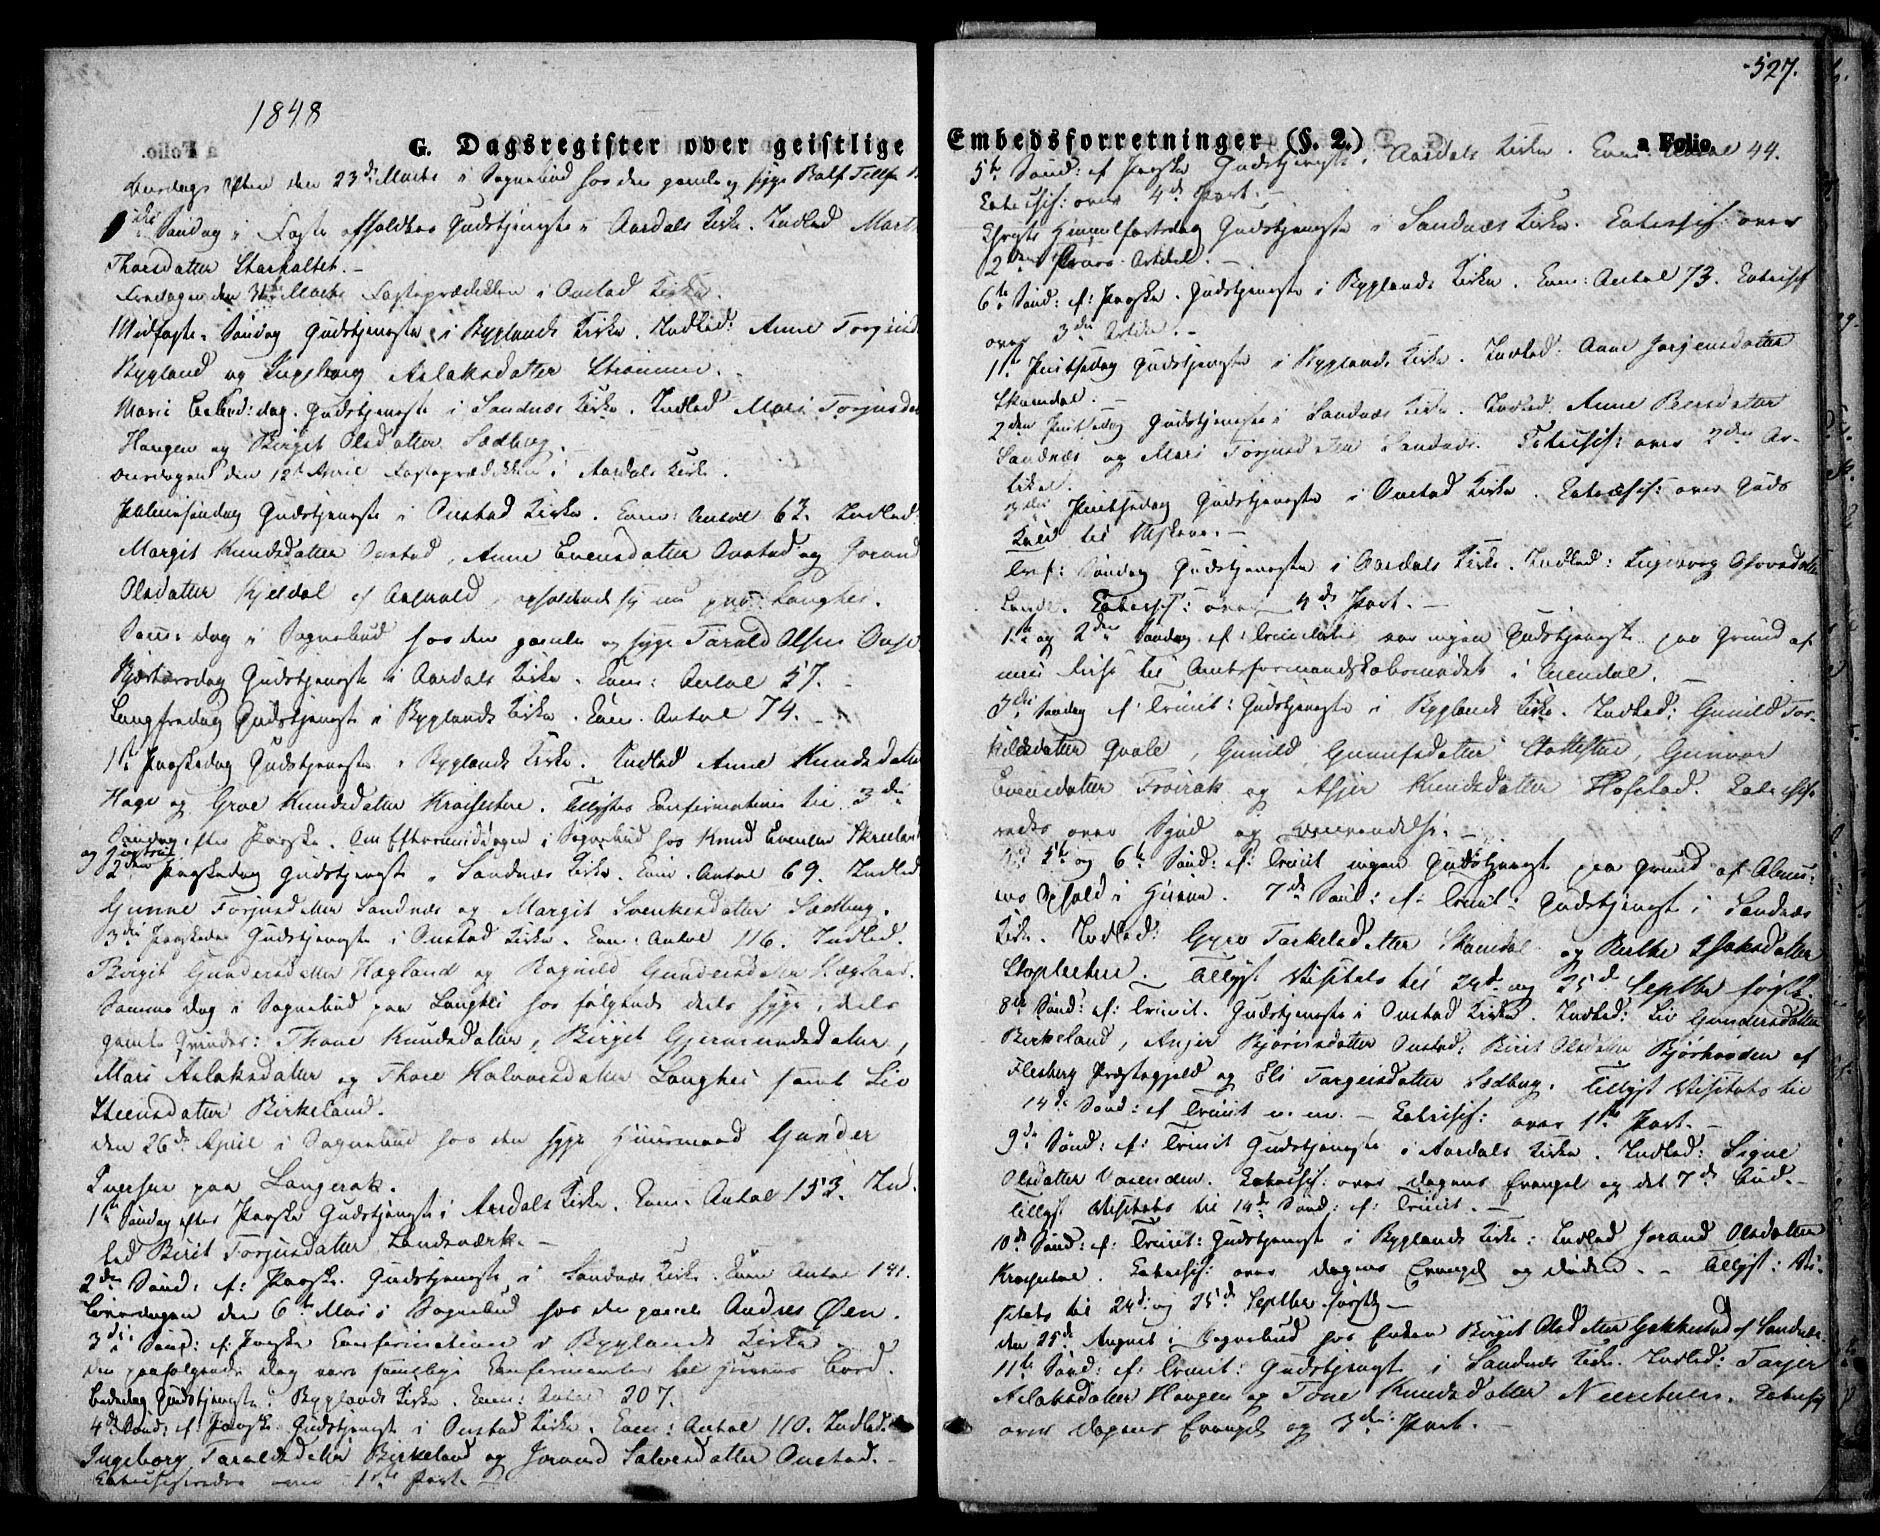 1848
G. Dagsregister over geistlige
Onsdags Aften den 23de Marts i Sognebud hos den gamle og syge Rolf
3die Søndag i Faste afholdtes Gudstjeneste i Aardals Kirke. Indled
Thorsdatter
Fredagen den 31te Marts Fasteprædiken i Onstad Kirke.
Midfaste Søndag Gudstjeneste i Byglands Kirke. Indled: Anne
Bygland og Ingeborg Aslaksdatter Strømme.
Mariæ Bebud: dag. Gudstjeneste i Sandnæs Kirke. Indled Mari
Haugen og Birgit Olsdatter Sædberg.
Onsdagen den 12te April Fasteprædiken i Aardals Kirke.
Palmesøndag Gudstjeneste i Onstad Kirke. Com: Antal 62. Indled:
Margit Knudsdatter Onstad, Anne Evensdatter Onstad og Jorand
Olsdatter Kjeldal af, opholdende sig nu paa Langhei.
Samme dag i Sognebud hos den gamle og syge Tarald Olsen
Skjærtorsdag Gudstjeneste i Aardals Kirke. Com: Antal 57.
Langfredag Gudstjeneste i Byglands Kirke. Com. Antal 74.
1ste Paaskedag Gudstjeneste i Byglands Kirke. Indled Anne Knudsdatter
Hage og Groe Knudsdatter. Tillystes Confirmation til 3die
Søndag efter Paaske. Om Eftermiddagen i Sognebud hos Knud Evensen
og
2den Paaskedag Gudstjeneste i Sandnæs Kirke. Com. Antal 69. Indled
Gunne Torjusdatter Sandnæs og Margit Svenkesdatter Sædberg.
3die Paaskedag Gudstjeneste i Onstad Kirke. Com: Antal 116. Indled.
Birgit Gundersdatter Hægland og Ragnild Gundersdatter Hægland.
Samme dag i Sognebud paa Langhei hos følgende dels syge, dels
gamle Qvinder: Thone Knudsdatter, Birgit Gjermundsdatter,
Mari Aslaksdatter og Thore Halvorsdatter Langhei samt Liv
Steensdatter Birkeland.
den 26de April i Sognebud hos den syge Huusmand Gunder
Iversen paa Langerak.
1ste Søndag efter Paaske Gudstjeneste i Aardals Kirke. Com: Antal 153. Ind-
led Birit Torjusdatter Landsværk.
2den Sønd: ef: Paaske. Gudstjeneste i Sandnæs Kirke. Com Antal 141.
Løverdagen den 6te Mai i Sognebud hos den gamle Andres Øen.
3die Sønd: ef: Paaske Confirmation i Byglands Kirke
den paafølgende dag vare samtlige Confirmanter til Herrens Bord.
Bededag Gudstjeneste i Byglands Kirke. Com: Antal 207.
4de Sønd: ef: Paaske Gudstjeneste i Onstad Kirke. Com: Antal 110. Indled:
Ingeborg Taraldsdatter Birkeland og Jorand Salvesdatter Onstad.
Catechiseredes over 1ste Part.
527.
Embedsforretninger (§. 2.)
a Folio.
5te Sønd: ef Paaske Gudstjeneste i Aardals Kirke. Com: Antal 44.
Catechis: over 4de Part.
Christi Himmelfartsdag Gudstjeneste i Sandnæs Kirke. Catechis: over
2den Troes-Artikel.
6te Sønd: ef: Paaske. Gudstjeneste i Byglands Kirke. Com: Antal 73. Catechis:
over 3die Artikel.
1ste Pintsedag Gudstjeneste i Byglands Kirke. Indled: Anne Jørgensdatter
Skamdal.
2den Pintsedag Gudstjeneste i Sandnæs Kirke. Indled. Anne
Sandnæs og Mari Torjusdatter Sandnæs. Catechis: over 2den Ar-
tikel.
3die Pintsedag Gudstjeneste i Onstad Kirke. Catechis: over Guds
til
Tref: Søndag Gudstjeneste i Aardals Kirke. Indled: Ingeborg
Lande. Catechis: over 4de Part.
1ste og 2den Søndag ef: Trinitatis var ingen Gudstjeneste paa Grund af
min Reise til Amtsformandskabsmødet i Arendal.
3die Søndag ef: Trinit: Gudstjeneste i Byglands Kirke. Indled: Gunild Tor-
kildsdatter Qvale, Gunild Gunnufsdatter, Gunvor
Evensdatter Froirak og Asjer Knudsdatter Hofstad. Catechise-
redes over Synd og
4de 5te og 6te Sønd: ef: Trinit ingen Gudstjeneste paa Grund af
Ophold i. 7de Sønd: ef: Trinit: Gudstjeneste i Sandnæs
Kirke. Indled: Gyro Tarkelsdatter Skamdal og Berthe Isaksdatter
. Tillyst Visitats til 24de og 25de Septbr førstk.
8de Sønd: ef: Trinit. Gudstjeneste i Onstad Kirke. Indled: Liv Gundersdatter
Birkeland, Asjer Bjørnsdatter Onstad, Birit Olsdatter af
Flesberg Præstegjeld og Eli Targeisdatter Sædberg. Tillyst Visitats til
14de Sønd: ef Trinit u. m. Catechis: over 1ste Part.
9de Sønd: ef: Trinit Gudstjeneste i Aardals Kirke. Indled: Signe
Olsdatter Vasenden. Catechis: over dagens Evangel og det 7de Bud.
Tillyst Visitats til 14de Sønd: ef: Trinit.
10de Sønd: ef: Trinit: Gudstjeneste i Byglands Kirke: Indled Jorand Olsdatter
. Catechis: over dagens Evangel og døden. Tillyst: Vi-
sitats til 24de og 25de Septbr førstk.
den 25de August i Sognebud hos Enken Birgit Olsdatter af Sandnæs
11te Sønd: ef: Trinit: Gudstjeneste i Sandnæs Kirke. Indled: Tarjer
Aslaksdatter Haugen og Tone Knudsdatter. Catechis:
over dagens Evangel og 3die Part.